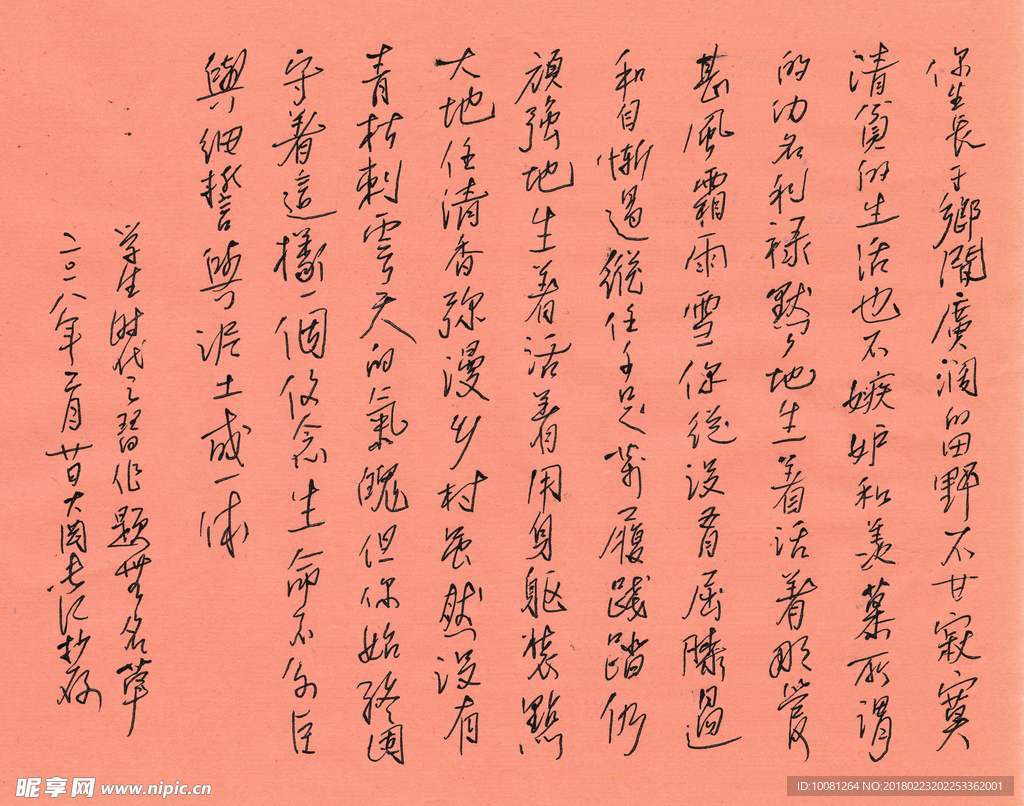 你生長于鄉間廣阔的田野不甘寂寞
清貧的生活也不嫉妒和羡慕所謂
的功名利禄默々地生着活着那管
甚風霜雨雪你從没有屈膝過
和自惭過縱任千足萬履踐踏仍
頑強地生着活着用身軀装點
大地任清香弥漫乡村虽然没有
青枝刺雲天的氣魄但你始终固
守着這樣一個信念生命不
與細语與泥土成一体
学生时代之習作题無名草
二〇一八年二月廿日大圆抄
昵享网 www.nipic.cn
ID:10081264 NO:20180223202253362001